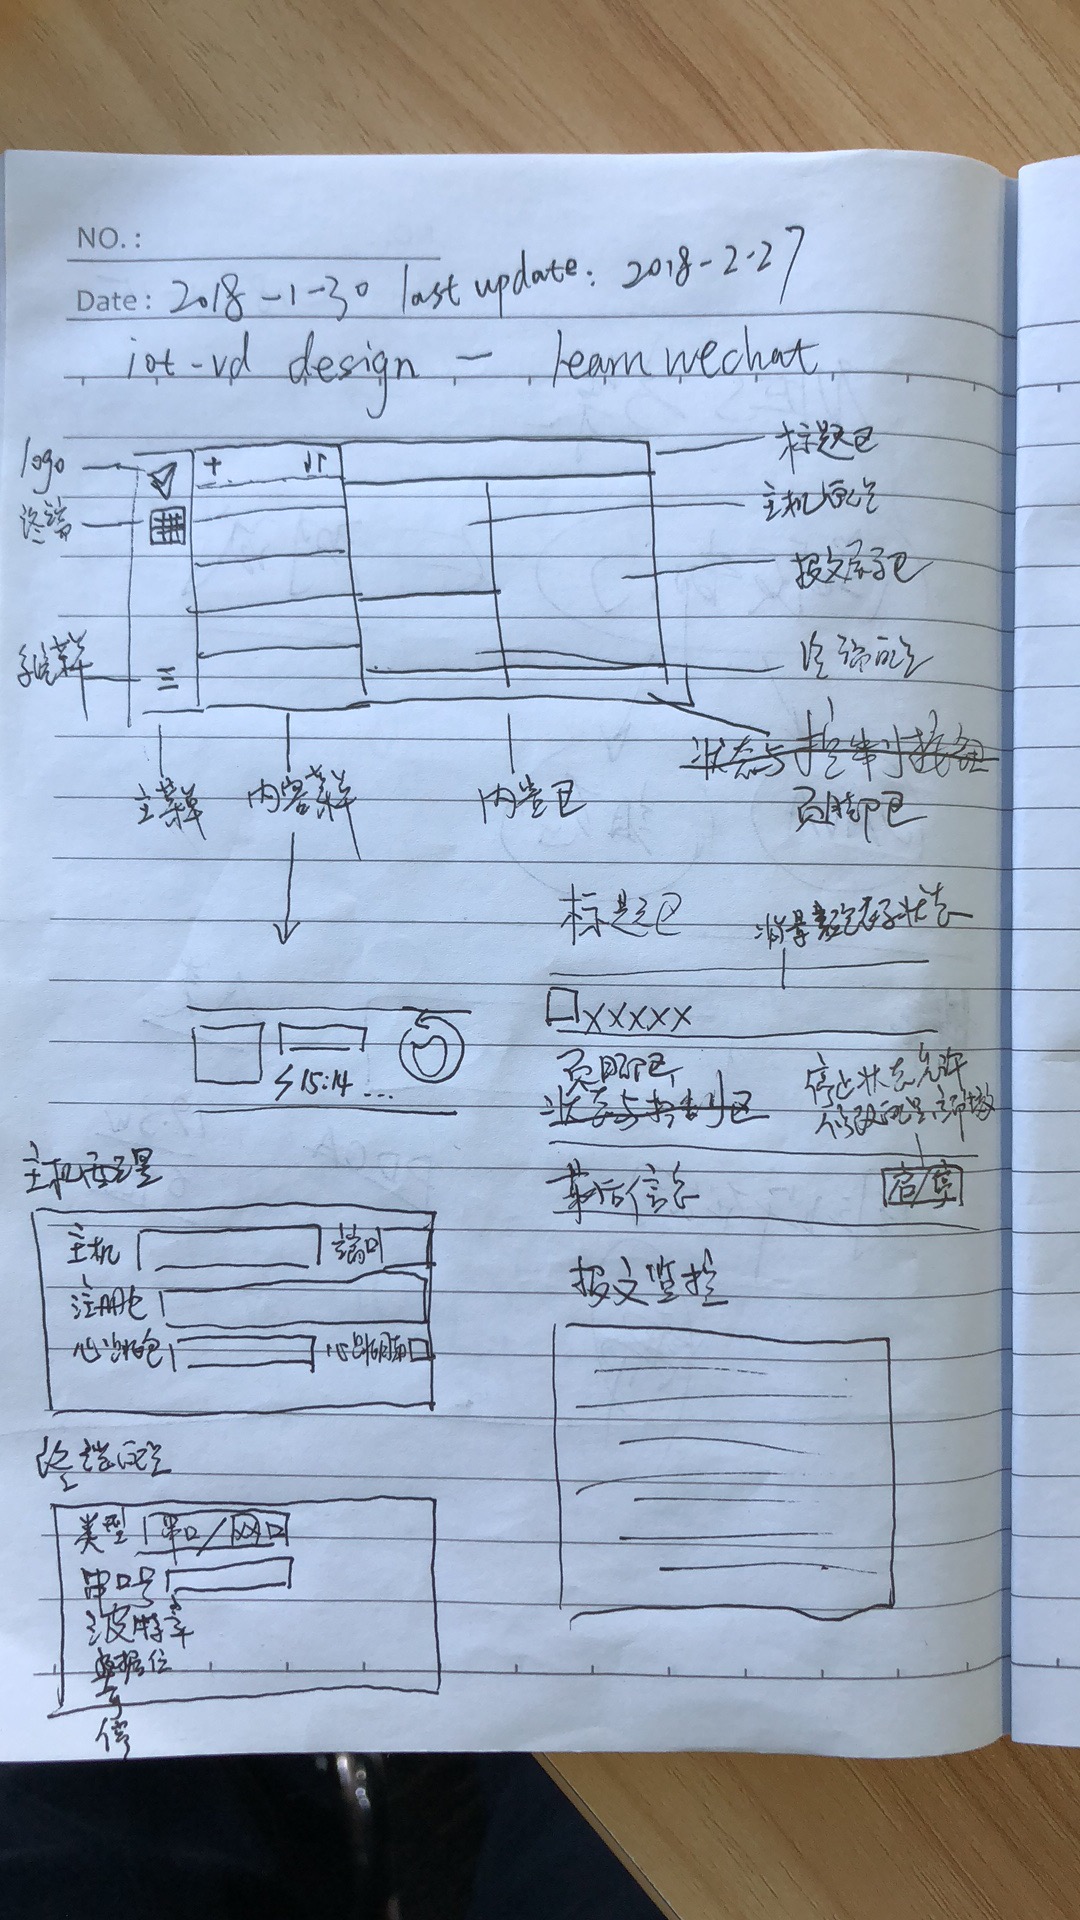 NO.:
Date: 2018-1-30 last update: 2018-2-27
iot-vd design — learn wechat
logo
终端
系统菜单
标题区
主机配置
报文显示区
终端配置
状态与控制按钮
页脚区
主菜单
内容菜单
内容区
标题区
背景颜色表示状态
XXXXX
15:14 ...
页脚区
状态与控制区
停止状态允许
修改配置
幕后信息
启/停
主机配置
主机
端口
注册包
心跳包
心跳周期
报文监控
终端配置
类型 串口/网口
串口号
波特率
数据位
停